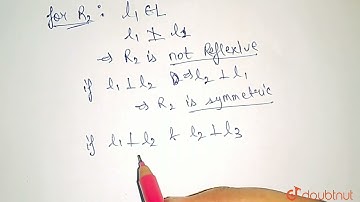 for R₂ : l₁ ∈ L
l₁ ⊥̸ l₁
⇒ R₂ is not Reflexive
if l₁ ⊥ l₂ ⇒ l₂ ⊥ l₁
⇒ R₂ is symmetric
if l₁ ⊥ l₂ & l₂ ⊥ l₃
doubtnut